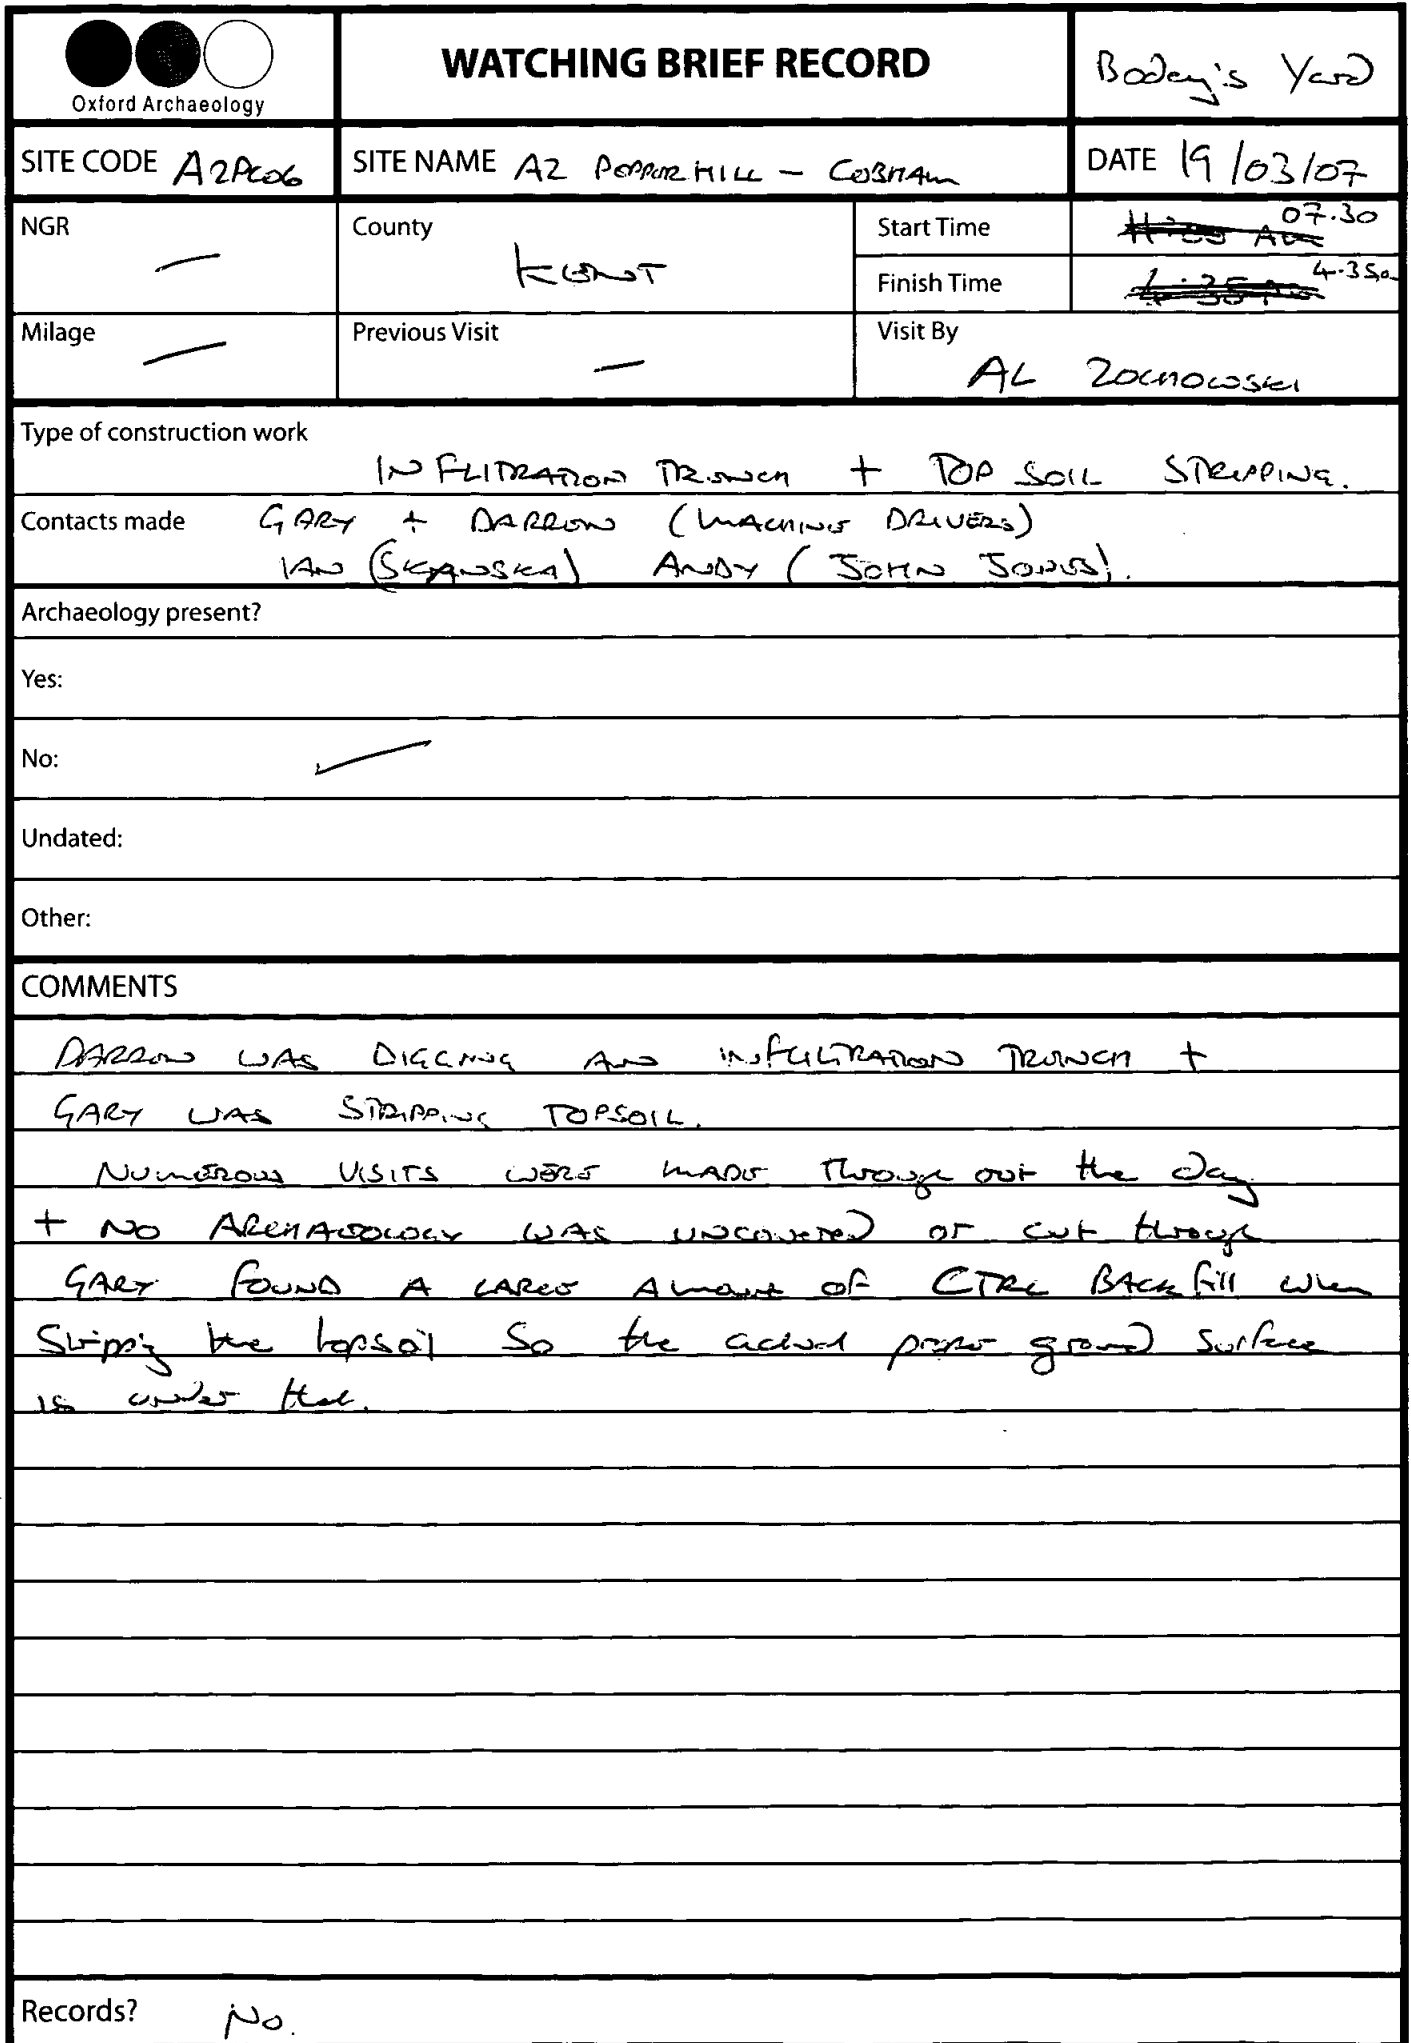 Oxford Archaeology
WATCHING BRIEF RECORD
Boden's Yard
SITE CODE A2PC06
SITE NAME A2 PEPPER HILL - COBHAM
DATE 19/03/07
NGR —
County KENT
Start Time 07.30
Finish Time 4.35
Milage —
Previous Visit —
Visit By AL ZOCHOWSKI
Type of construction work
INFLITRATION TRENCH + TOP SOIL STRIPPING.
Contacts made GARY + DARREN (MACHINE DRIVERS)
IAN (SKANSKA) ANDY (JOHN JONES).
Archaeology present?
Yes:
No: ✓
Undated:
Other:
COMMENTS
DARREN WAS DIGGING AN INFLITRATION TRENCH +
GARY WAS STRIPPING TOPSOIL.
NUMEROUS VISITS WERE MADE Through out the day
+ NO ARCHAEOLOGY WAS UNCOVERED or cut through
GARY FOUND A LARGE Amount OF CTRL BACK fill when
Stripping the topsoil So the actual proper ground surface
is under that.
Records? No.